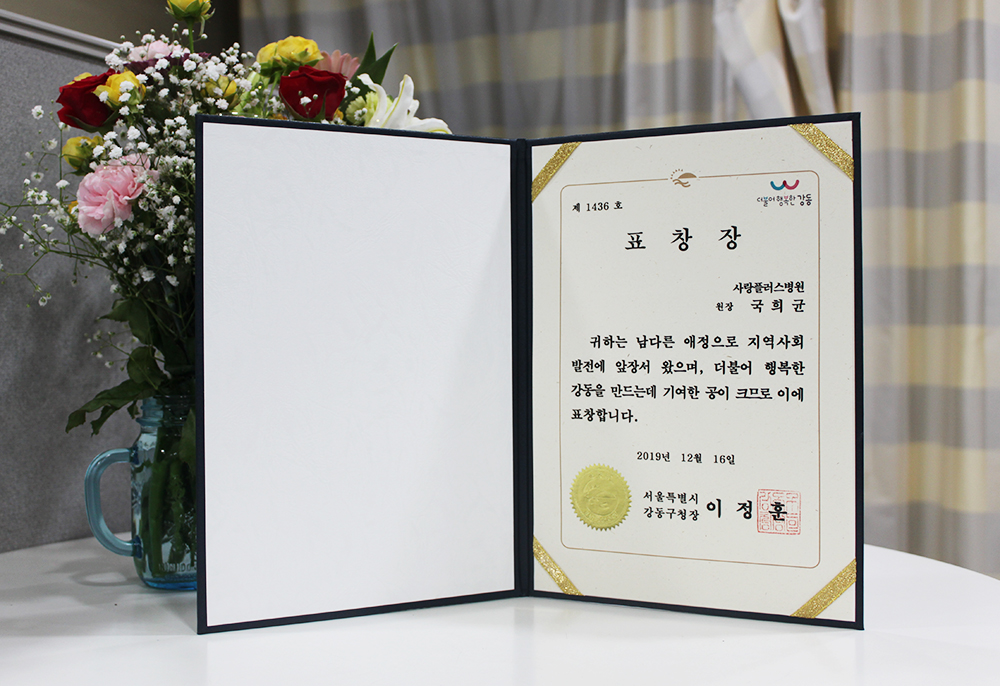 제 1436 호
더불어 행복한 강동
표 창 장
사랑플러스병원
원장 국 희 균
귀하는 남다른 애정으로 지역사회
발전에 앞장서 왔으며, 더불어 행복한
강동을 만드는데 기여한 공이 크므로 이에
표창합니다.
2019년 12월 16일
서울특별시
강동구청장 이 정 훈